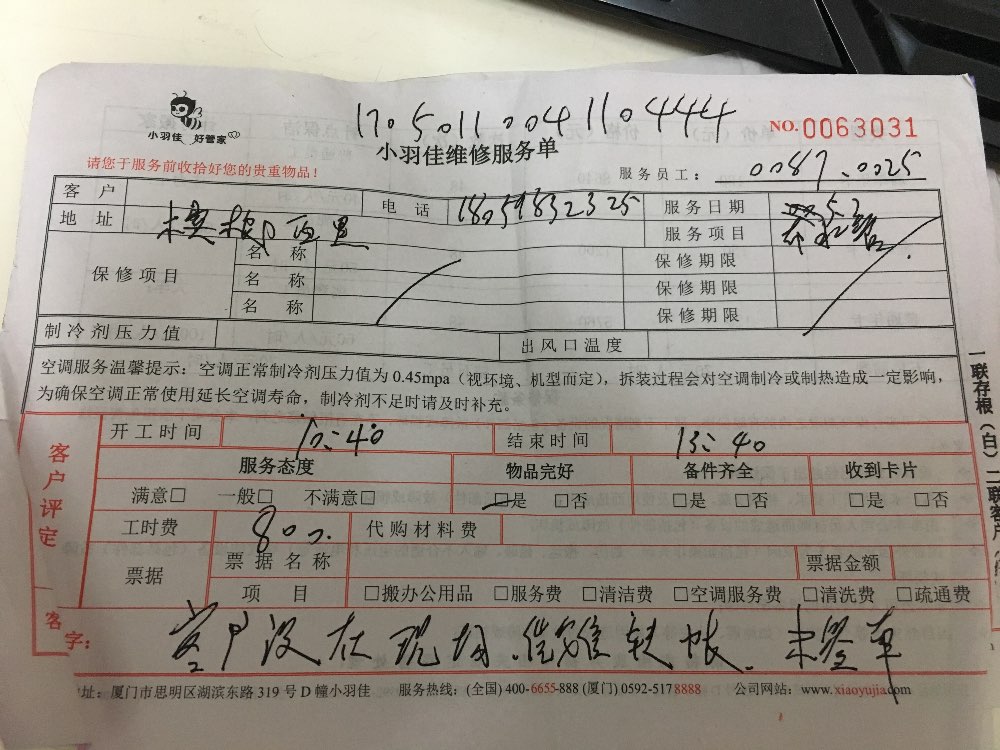 1705011004110444
小羽佳 好管家
NO.0063031
小羽佳维修服务单
请您于服务前收拾好您的贵重物品!
服务员工: 0087.0025
客户 电话 18059832325 服务日期 5.3
地址 西里 服务项目
保修项目 名称 保修期限
名称 保修期限
名称 保修期限
制冷剂压力值 出风口温度
空调服务温馨提示:空调正常制冷剂压力值为0.45mpa(视环境、机型而定),拆装过程会对空调制冷或制热造成一定影响,
为确保空调正常使用延长空调寿命,制冷剂不足时请及时补充。
一联存根(白)二联客户
客户评定
开工时间 10:40 结束时间 13:40
服务态度 物品完好 备件齐全 收到卡片
满意□ 一般□ 不满意□ □是 □否 □是 □否 □是 □否
工时费 80 代购材料费
票据 票据名称 票据金额
项目 □搬办公用品 □服务费 □清洁费 □空调服务费 □清洗费 □疏通费
客
字: 客户没在现场.佳雄转帐.未签单
址:厦门市思明区湖滨东路319号D幢小羽佳 服务热线:(全国)400-6655-888(厦门)0592-5178888 公司网站:www.xiaoyujia.com